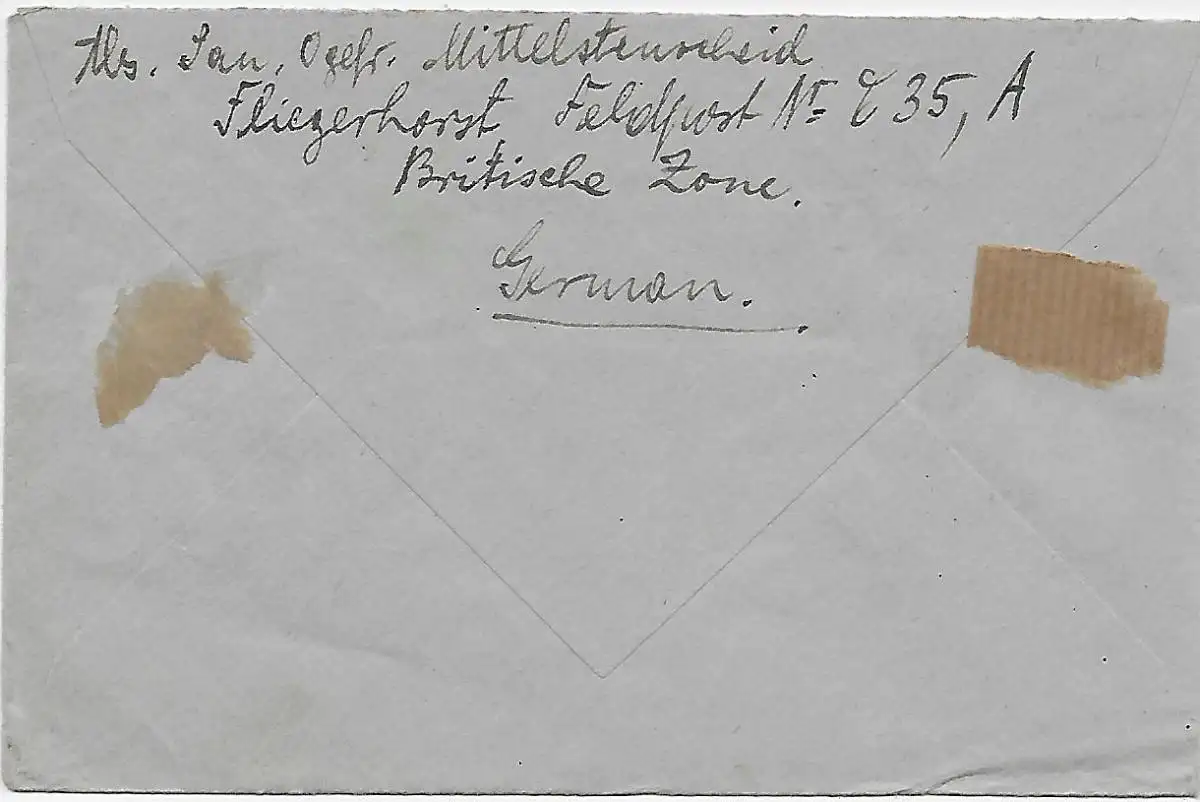 Abs. San. Ogefr. Mittelstenscheid
Fliegerhorst, Feldpost Nr 35, A
Britische Zone.
German.